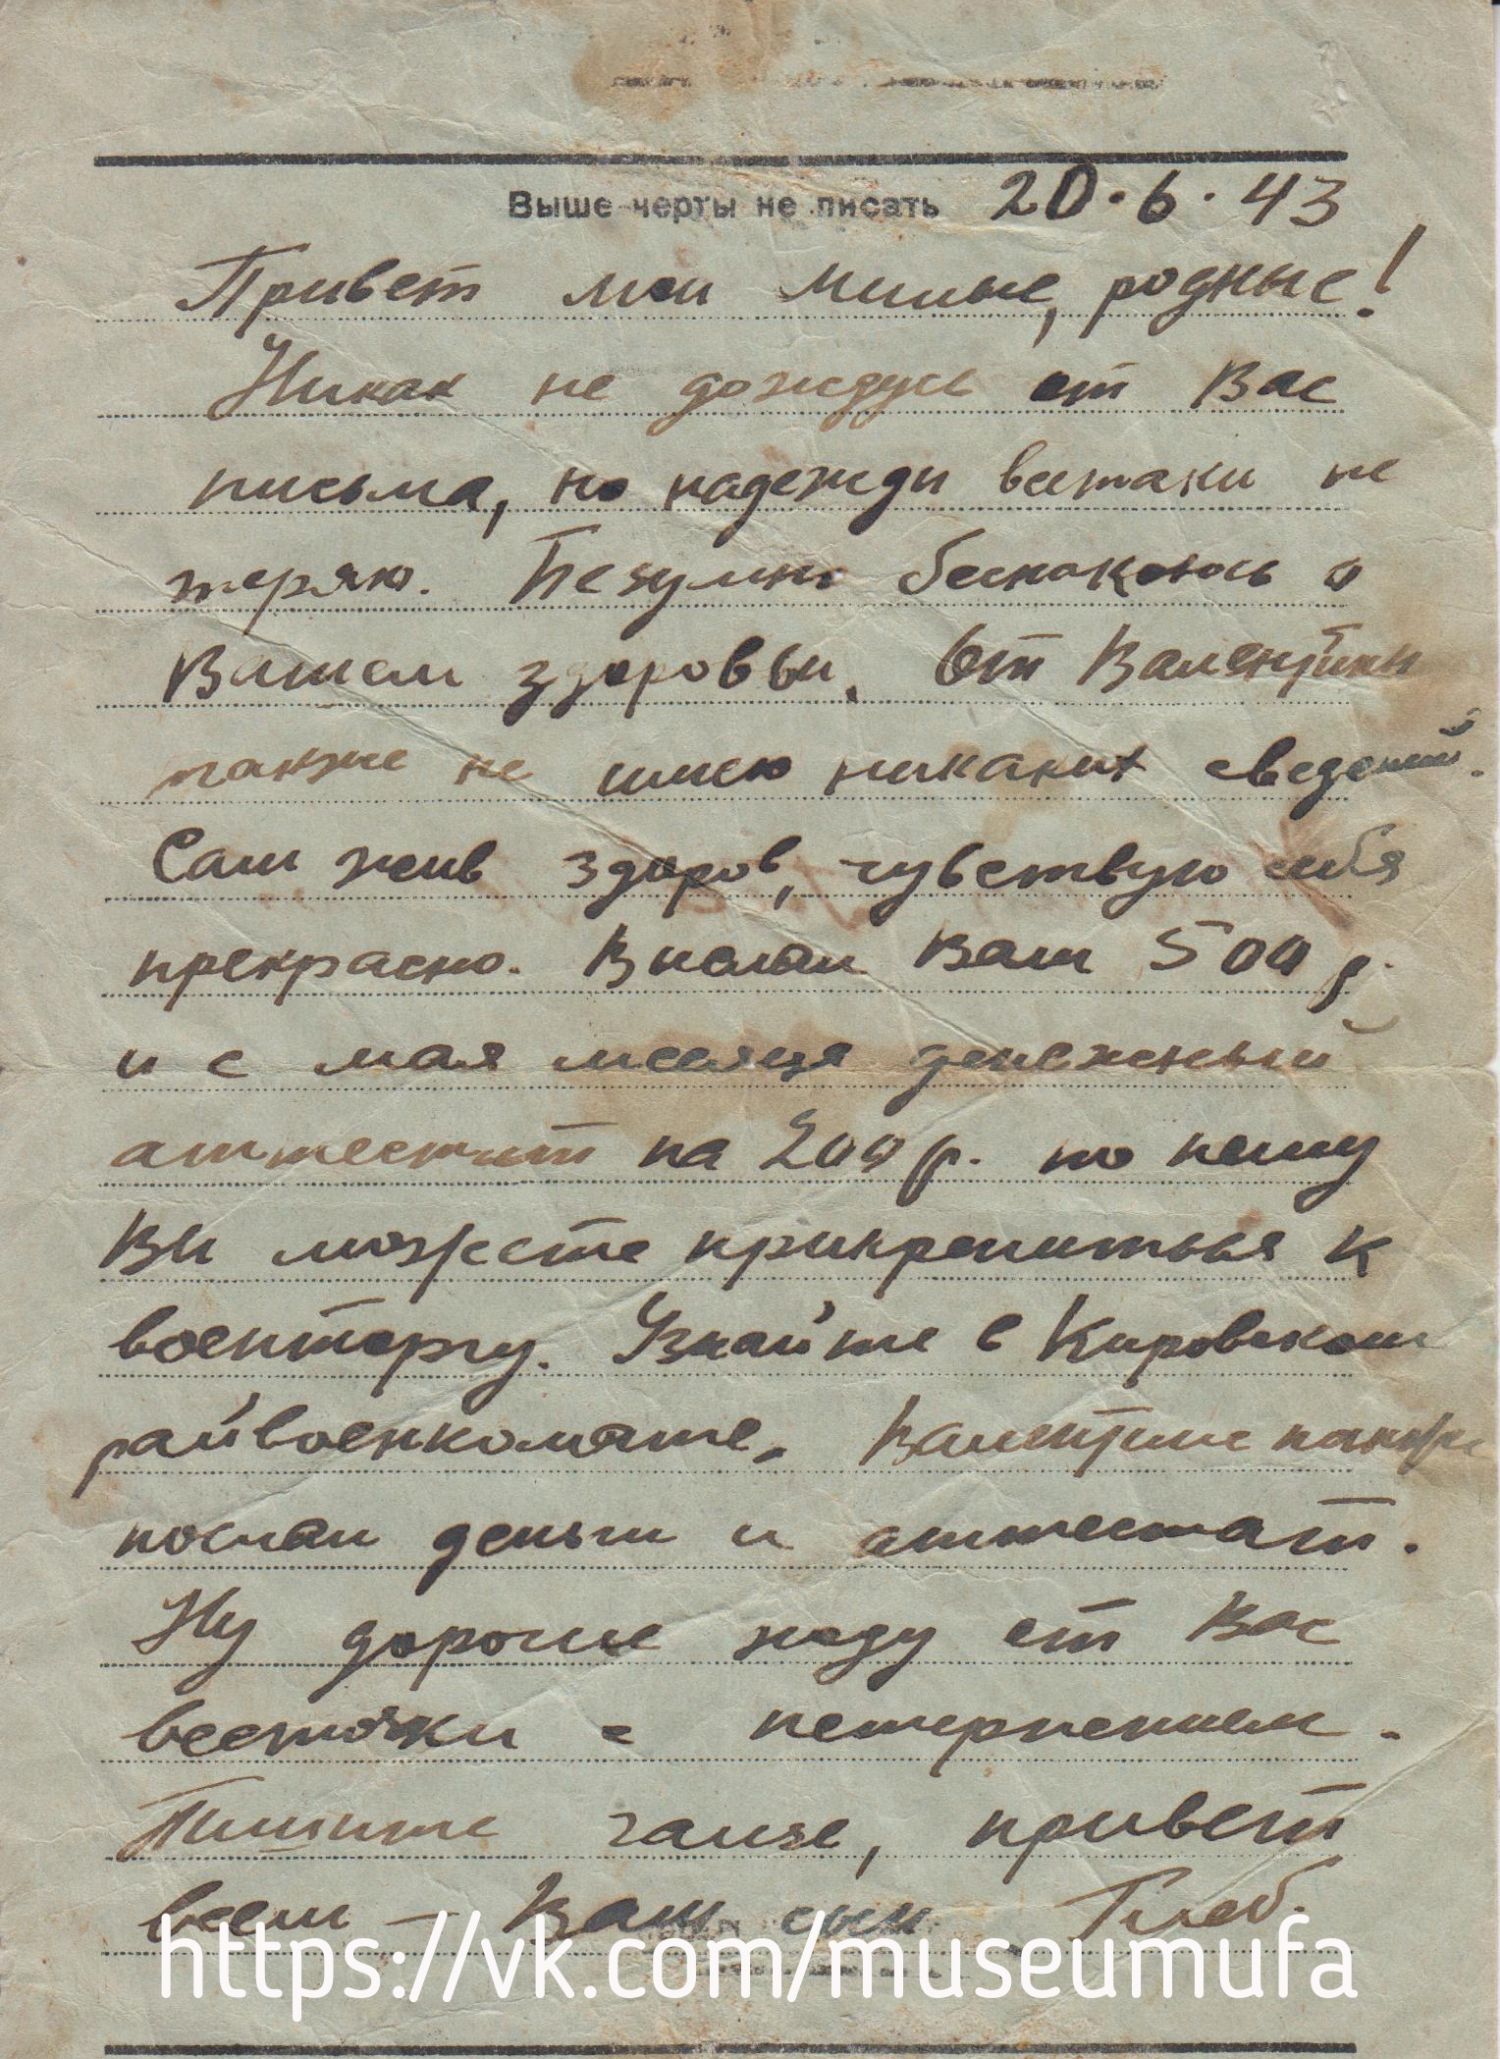 Выше черты не писать 20.6.43
Привет мои милые, родные!
Никак не дождусь от Вас
письма, но надежды всетаки не
теряю. Безумно беспокоюсь о
Вашем здоровьи. От Валентины
также не имею никаких сведений.
Сам жив здоров, чувствую себя
прекрасно. Выслал Вам 500 р.
и с мая месяца денежный
аттестат на 200 р. по нему
Вы можете прикрепиться к
военторгу. Узнайте в Кировском
райвоенкомате. Валентине
послал деньги и аттестат.
Ну дорогие жду от Вас
весточки с нетерпением.
Пишите чаще, привет
всем – Ваш сын Глеб.
https://vk.com/museumufa